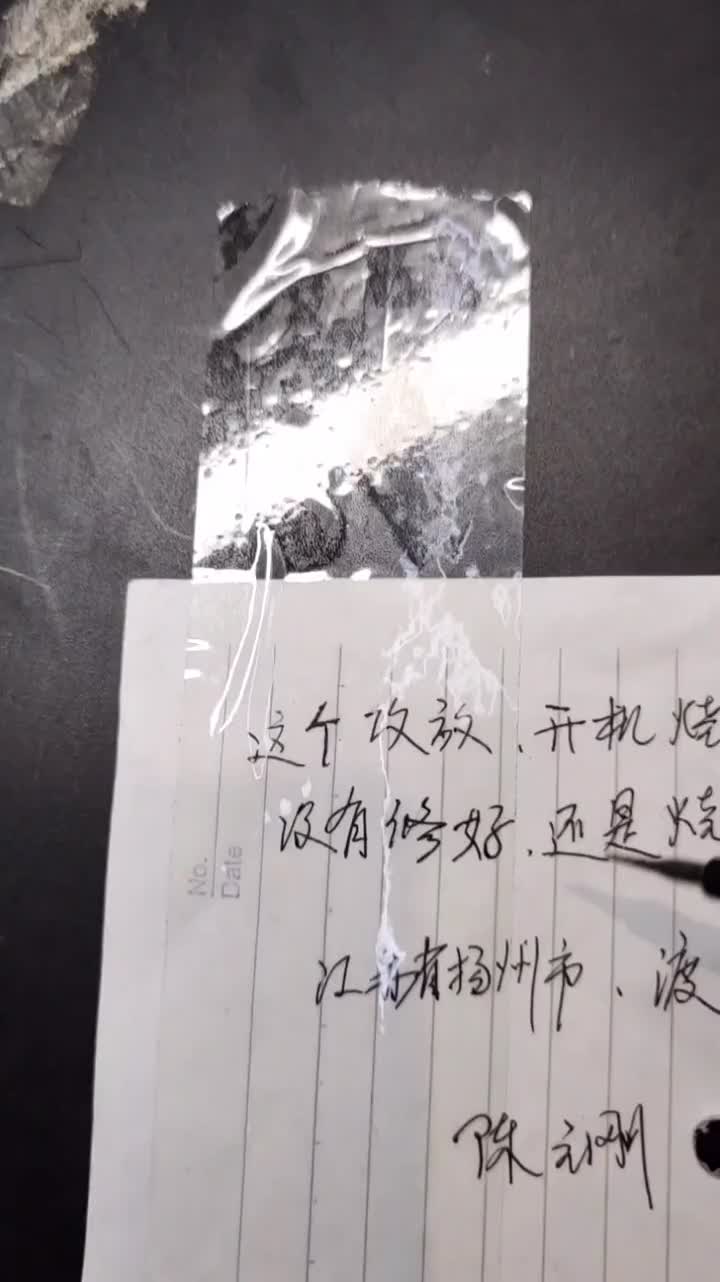 这个攻放、开机烧
没有修好、还是烧
江苏省扬州市、渡
陈立刚
No.
Date